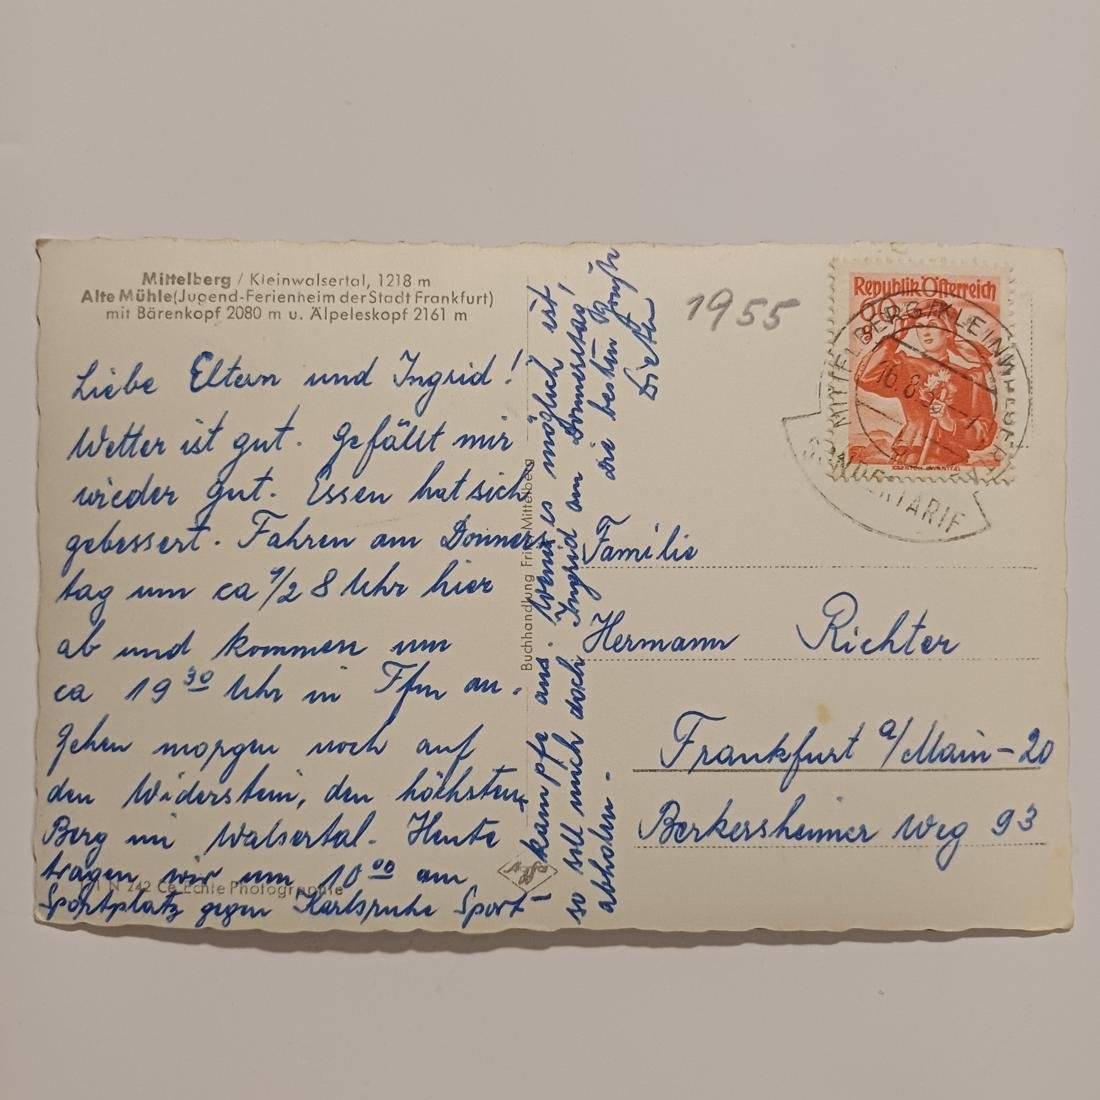 Mittelberg / Kleinwalsertal, 1218 m
Alte Mühle (Jugend-Ferienheim der Stadt Frankfurt)
mit Bärenkopf 2080 m u. Älpeleskopf 2161 m
Liebe Eltern und Ingrid!
Wetter ist gut. Gefällt mir
wieder gut. Essen hat sich
gebessert. Fahren am Donners
tag um ca 1/2 8 Uhr hier
ab und kommen um
ca 19 30 Uhr in Ffm an.
Gehen morgen noch auf
den Widerstein, den höchsten
Berg im Walsertal. Heute
tragen wir um 10 00 am
Sportplatz gegen Karlsruhe Sport-
kampfe aus. Wenn es möglich ist
so soll mich doch Ingrid am Donnerstag
abholen - die besten
Dieter
Buchhandlung Mittelberg
N 242 Echte Photographie
1955
Republik Österreich
60 g
MITTELBERG/KLEINWALSERTAL
16.8.
SONDERTARIF
Familie
Hermann Richter
Frankfurt a/Main-20
Berkersheimer Weg 93